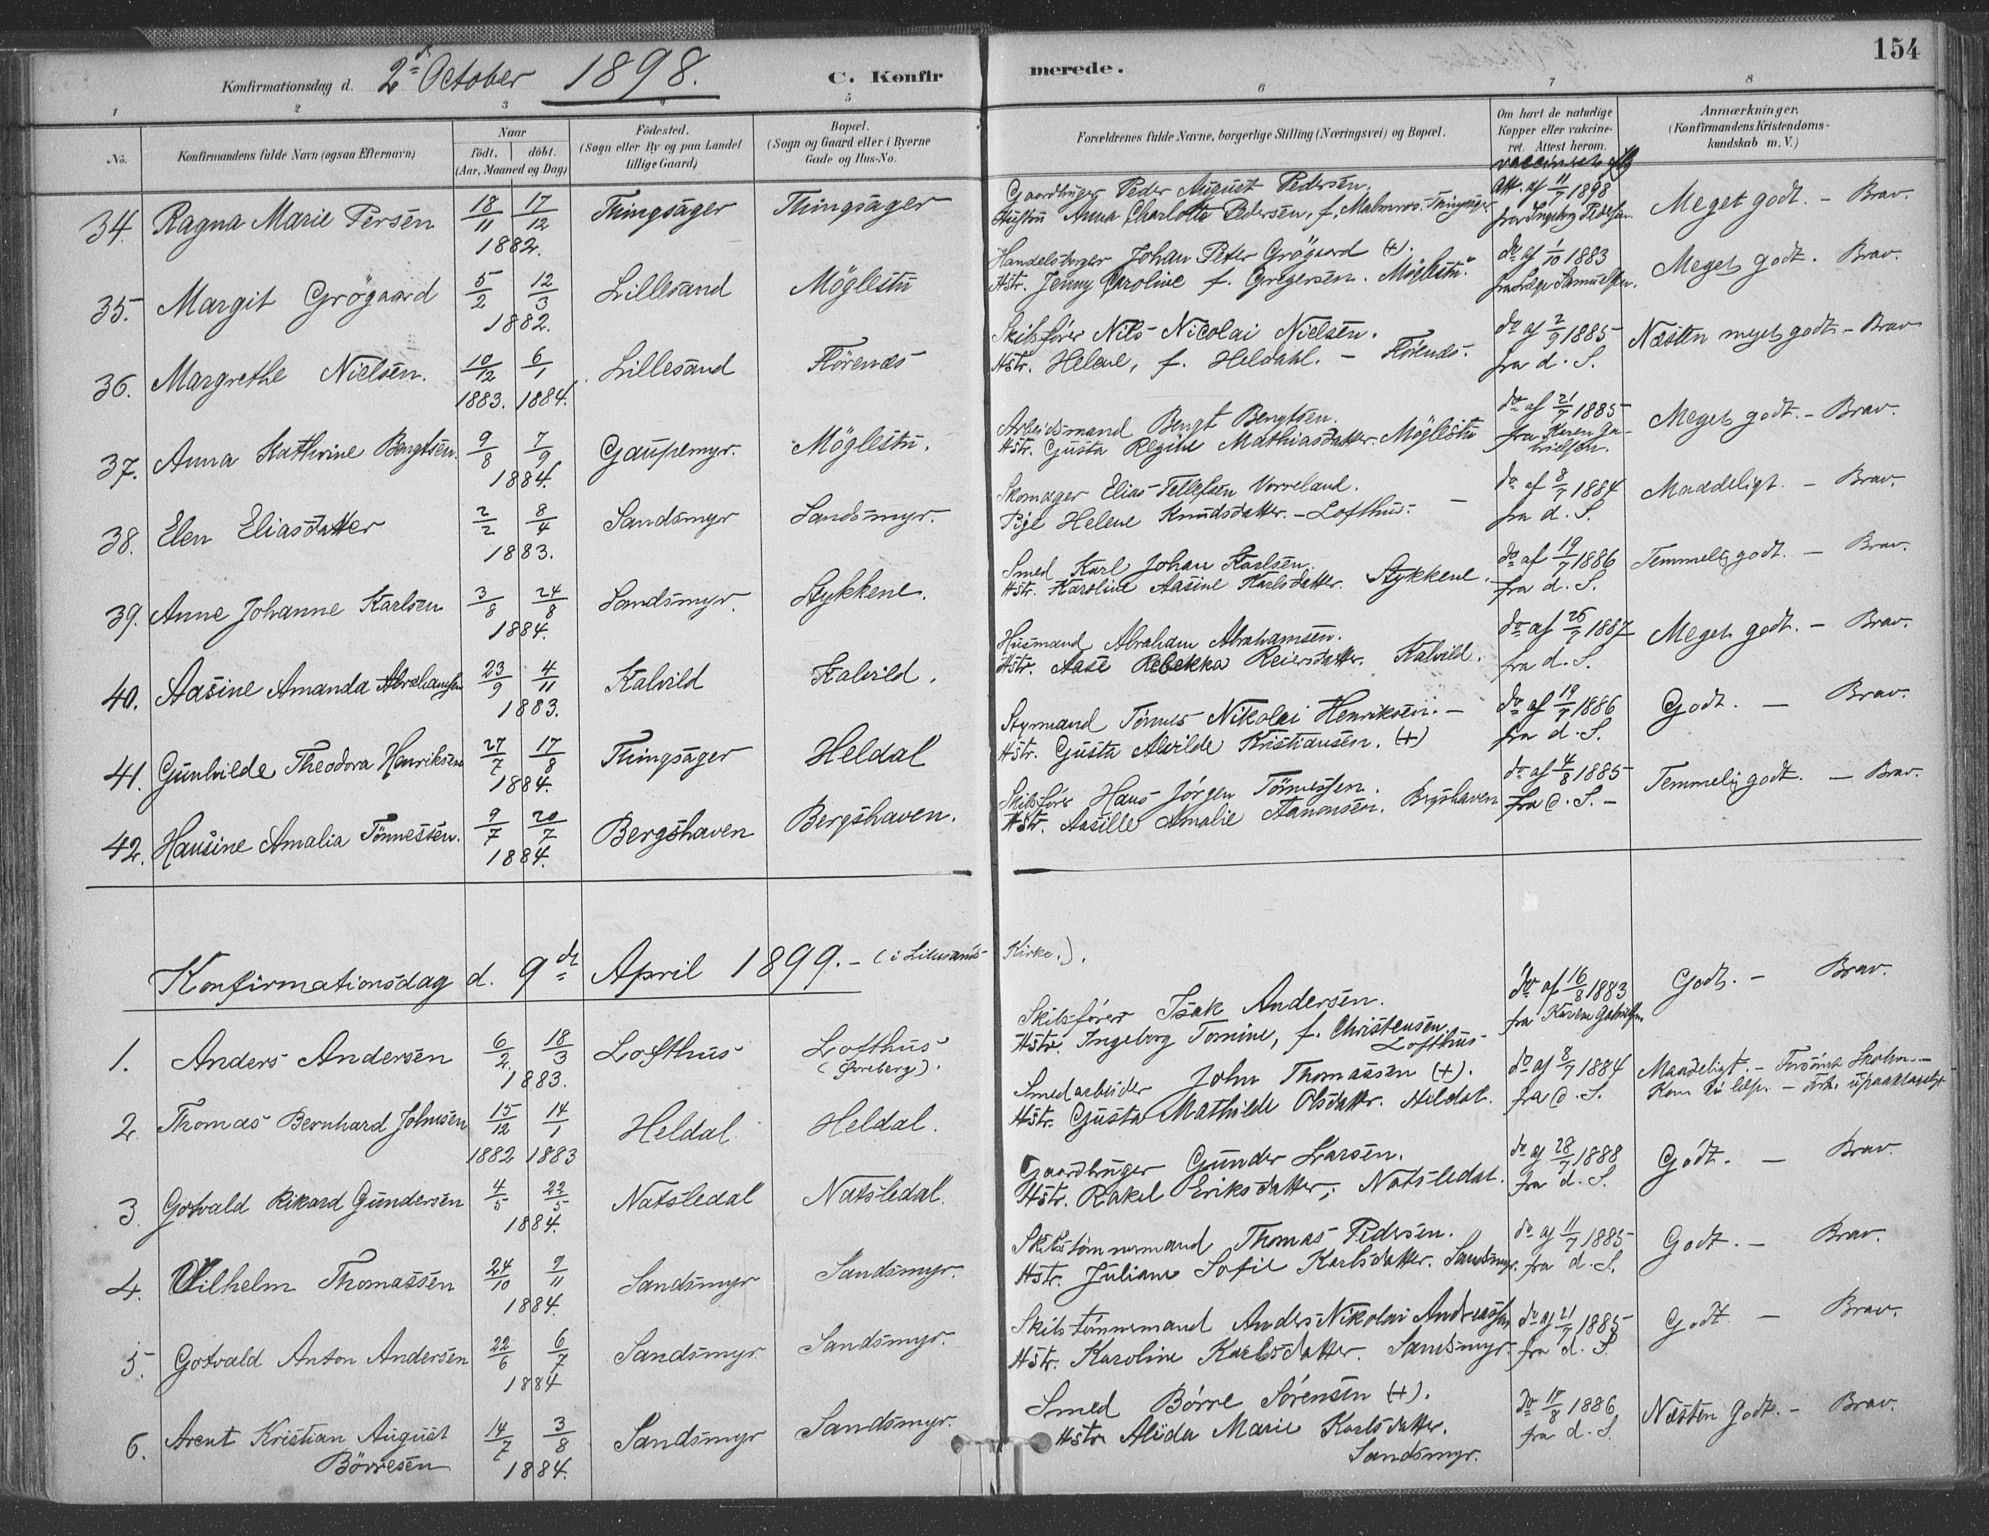 154
Konfirmationsdag d. 2den October 1898. C. Konfirmerede.
1 2 3 4 5 6 7 8
No. Konfirmandens fulde Navn (ogsaa Efternavn) Naar født, døbt. (Aar, Maaned og Dag) Fødested. (Sogn eller By og paa Landet tillige Gaard) Bopæl. (Sogn og Gaard eller i Byerne Gade og Hus-No. Forældrenes fulde Navne, borgerlige Stilling (Næringsvei) og Bopæl. Om havt de naturlige Kopper eller vakcineret. Attest herom. Anmærkninger. (Konfirmandens Kristendomskundskab m. V.)
34. Ragna Marie Persen 18/11 17/12 1882. Thingsager Thingsager
Gaardbruger Peder August Pedersen.
Hustru Anna Charlotte Pedersen, f. Malmros.
Att. af 11/7 1898 fra Ingeborg Pedersen Meget godt. - Brav.
35. Margit Grögaard 5/2 12/3 1882. Lillesand Möglestu
Handelsborger Johan Peter Grögaard (+).
Hstr. Jenny Caroline f. Gregersen. Möglestu.
do af 1/10 1883 fra Læge Samuelsen. Meget godt. Brav.
36. Margrethe Nielsen. 10/12 1883. 6/1 1884. Lillesand Flörenæs
Skibsfører Nils Nicolai Nielsen.
Hstr. Helene, f. Heldahl. - Flörenæs.
do af 2/9 1885 fra d. S. Næsten meget godt - Brav
37. Anna Kathrine Bengtsen. 9/8 7/9 1884. Gaupemyr. Möglestu.
Arbeidsmand Bengt Bengtsen.
Hstr. Gusta Regine Mathiasdatter. Möglestu
do af 21/7 1885 fra Karen Gabrielsen. Meget godt. - Brav.
38. Elen Eliasdatter 2/2 8/4 1883. Sandsmyr Sandsmyr.
Skomager Elias Tellefsen Vorreland.
Pige Helene Knudsdatter. - Lofthus. -
do af 8/7 1884 fra d. S. Maadeligt. - Brav.
39. Anne Johanne Karlsen 3/8 24/8 1884. Sandsmyr. Stykkene.
Smed Karl Johan Karlsen.
Hstr. Karoline Aasine Karlsdatter. Stykkene.
do af 19/7 1886 fra d. S. Temmelig godt. - Brav.
40. Aasine Amanda Abrahamsen 23/9 4/11 1883. Kalvild Kalvild.
Husmand Abraham Abrahamsen.
Hstr. Aase Rebekka Reiersdatter. Kalvild.
do af 26/7 1887 fra d. S. Meget godt. - Brav.
41. Gunhilde Theodora Henriksen 27/7 17/8 1884. Thingsager Heldal
Styrmand Tönnes Nikolai Henriksen. -
Hstr. Gusta Alvilde Kristiansen. (+)
do af 19/7 1886 fra d. S. Godt. - Brav.
42. Hansine Amalia Tönnessen. 9/7 20/7 1884. Bergshaven Bergshaven.
Skibsfører Hans Jörgen Tönnessen.
Hstr. Aasille Amalie Aanonsen. Bergshaven
do af 4/8 1885 fra d. S. - Temmelig godt. - Brav.
Konfirmationsdag d. 9de April 1899. - (i Lillesands Kirke.).
1. Anders Andersen 6/2 18/3 1883. Lofthus Lofthus
Skibsfører Isak Andersen.
Hstr. Ingeborg Tomine, f. Christensen.
Lofthus
do af 16/8 1883 fra Karen Gabrielsen Godt. - Brav.
2. Thomas Bernhard Johnsen 15/12 1882 14/1 1883 Heldal Heldal.
Smedarbeider John Thomassen (+).
Hstr. Gusta Mathilde Olsdatter. Heldal.
do af 8/7 1884 fra d. S. Maadeligt. -
3. Gotvald Rikard Gundersen 4/5 22/5 1884. Natsledal Natsledal.
Gaardbruger Gunder Larsen.
Hstr. Rakel Eriksdatter; Natsledal.
do af 28/7 1888 fra d. S. Godt. - Brav.
4. Vilhelm Thomassen 24/10 9/11 1884. Sandsmyr Sandsmyr.
Skibstömmermand Thomas Pedersen.
Hstr. Juliane Sofie Karlsdatter. Sandsmyr.
do af 11/7 1885 fra d. S. Godt. - Brav.
5 Gotvald Anton Andersen 22/6 6/7 1884 Sandsmyr. Sandsmyr.
Skibstömmermand Anders Nikolai Andreassen
Hstr. Karoline Karlsdatter. Sandsmyr.
do af 21/7 1885 fra d. S. Godt - Brav.
6. Arent Kristian August Börresen 14/7 3/8 1884. Sandsmyr Sandsmyr.
Smed Börre Sörensen (+).
Hstr. Alida Marie Karlsdatter.
Sandsmyr.
do 18/8 1886 fra d. S. Næsten Godt. - Brav.